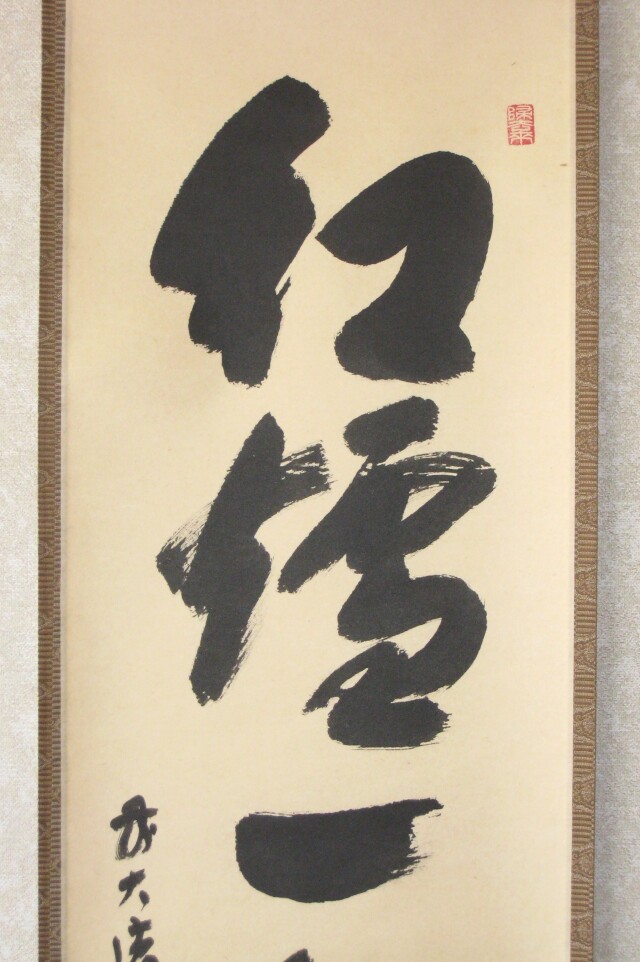 紅爐一
大徳